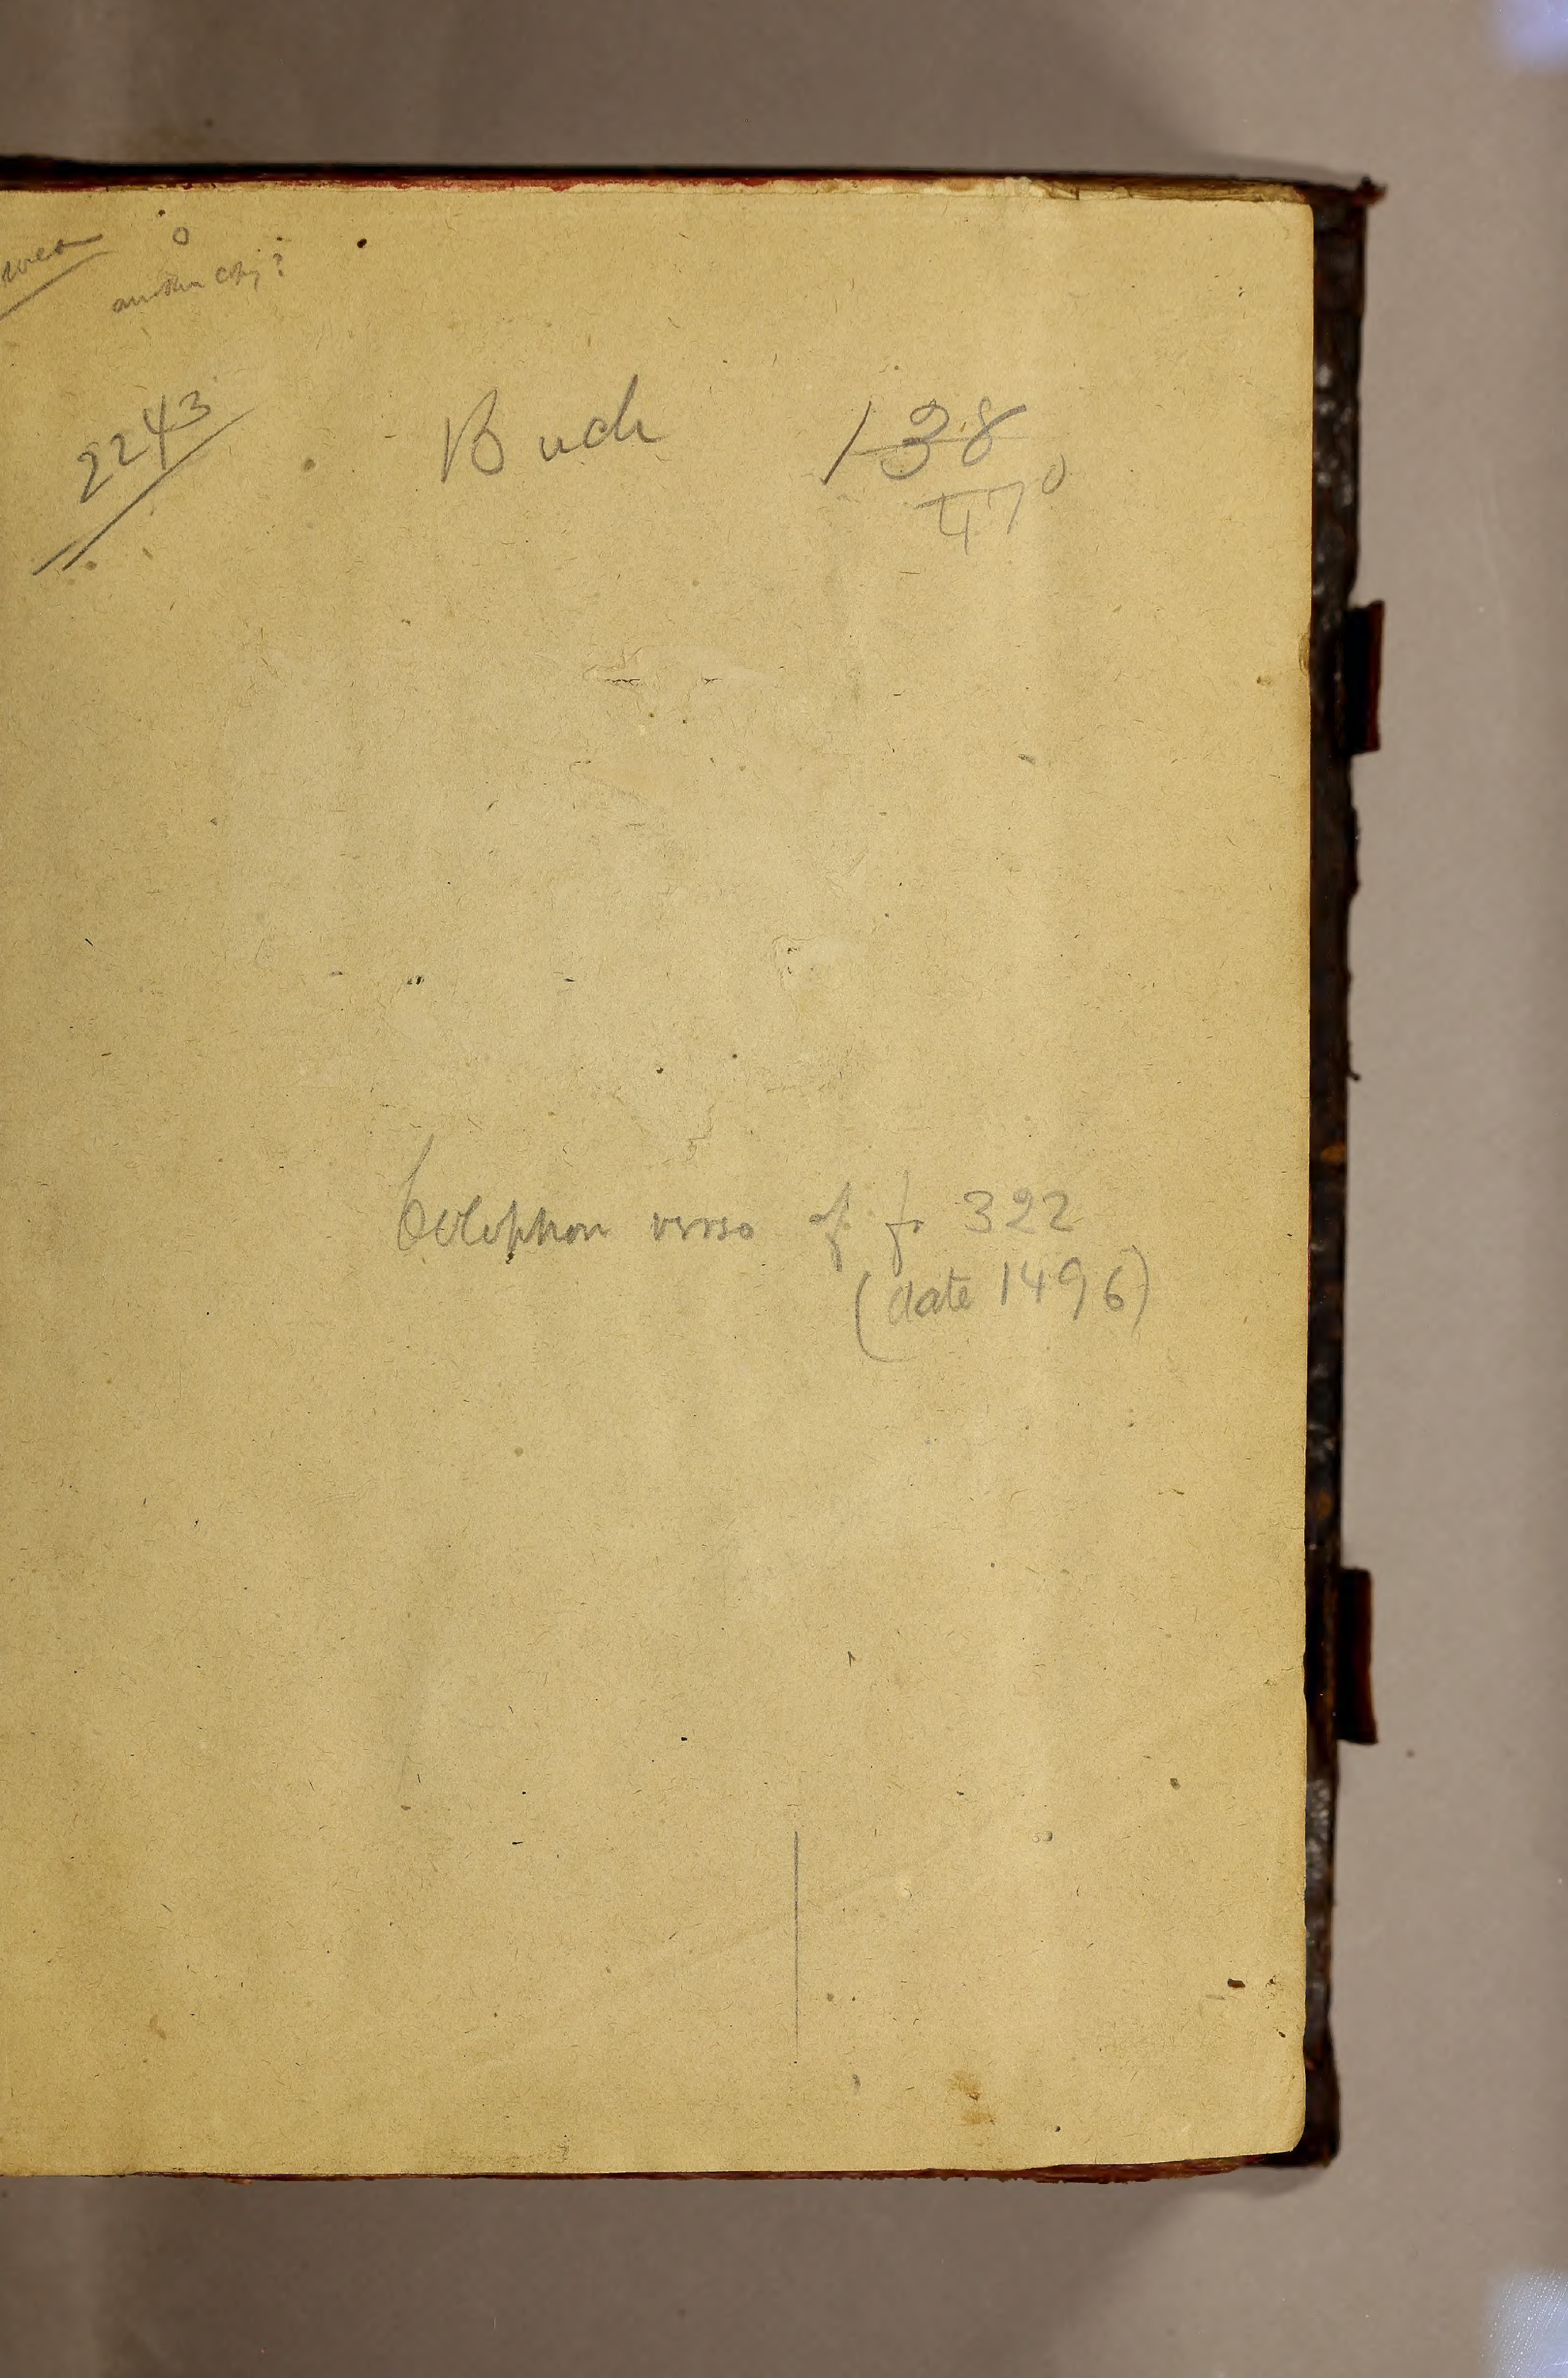 another copy?
2243
Buch 138
470
Colophon verso of f. 322
(date 1496)